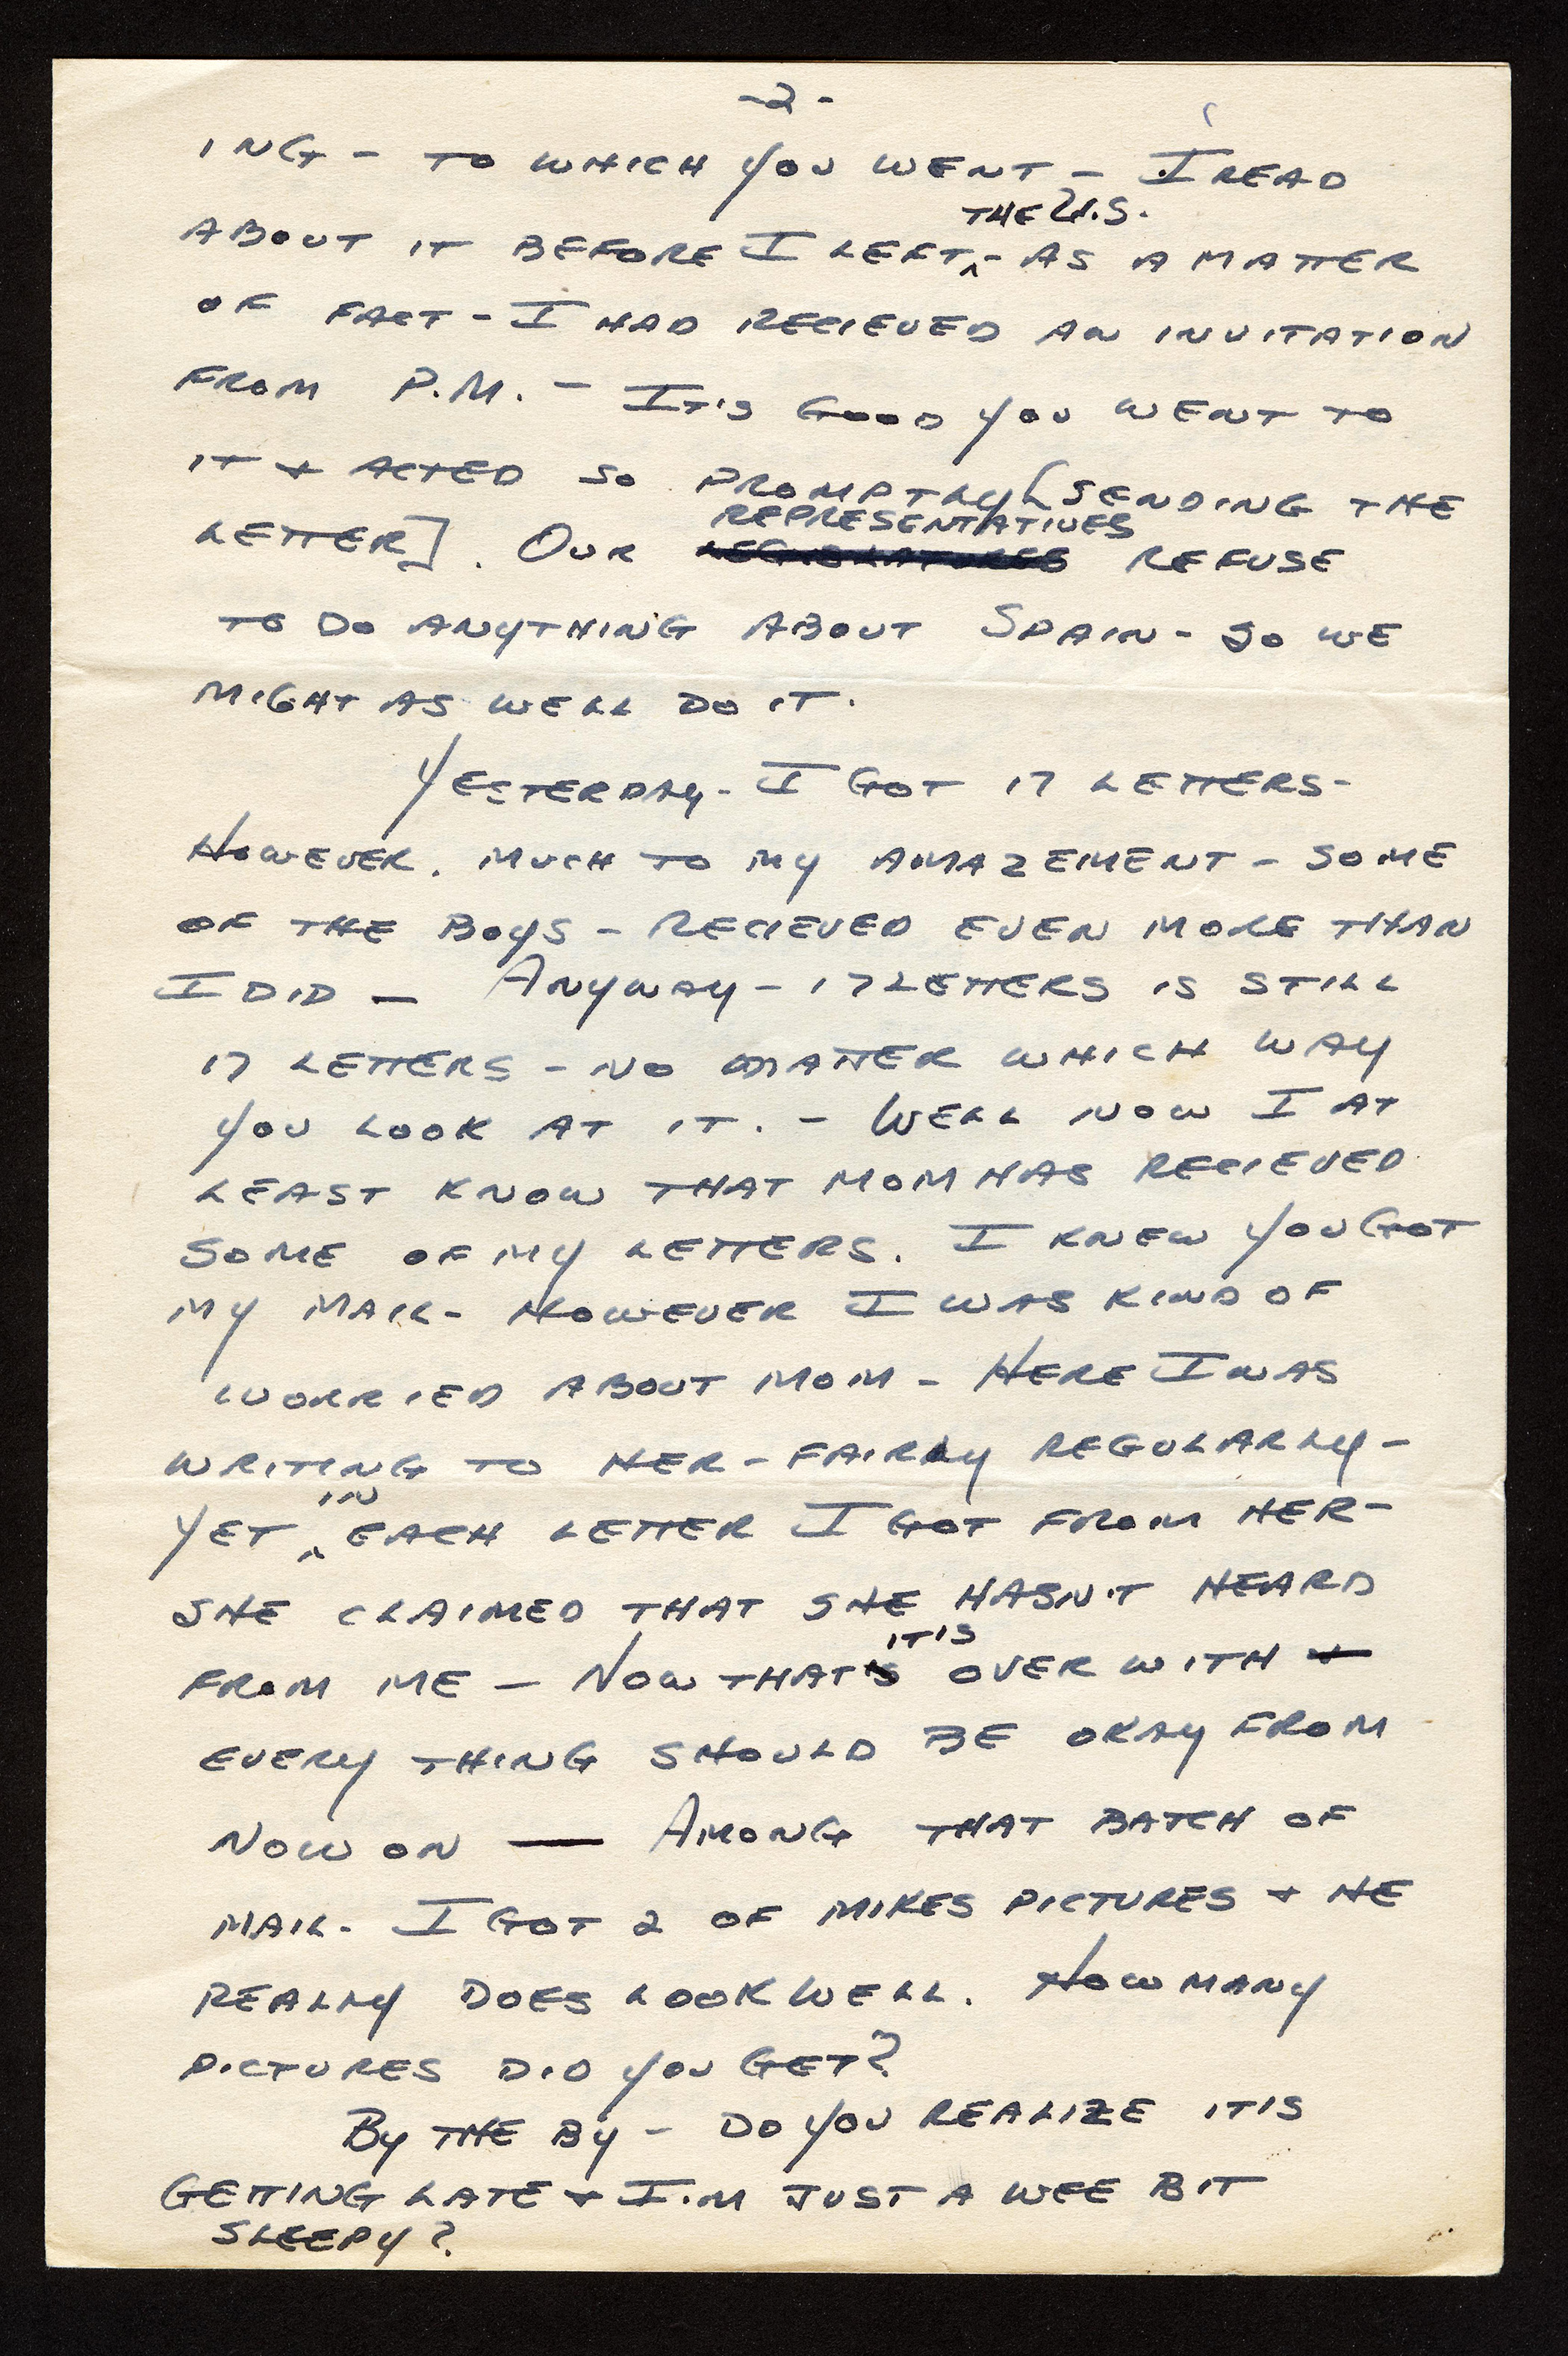 -2-
ING - TO WHICH YOU WENT - I READ
THE U.S.
ABOUT IT BEFORE I LEFT ^ - AS A MATTER
OF FACT - I HAD RECIEVED AN INVITATION
FROM P.M. - IT'S GOOD YOU WENT TO
IT + ACTED SO PROMPTLY [SENDING THE
REPRESENTATIVES
LETTER]. OUR REFUSE
TO DO ANYTHING ABOUT SPAIN - SO WE
MIGHT AS WELL DO IT.
YESTERDAY - I GOT 17 LETTERS -
HOWEVER. MUCH TO MY AMAZEMENT - SOME
OF THE BOYS - RECIEVED EVEN MORE THAN
I DID - ANYWAY - 17 LETTERS IS STILL
17 LETTERS - NO MATTER WHICH WAY
YOU LOOK AT IT. - WELL NOW I AT
LEAST KNOW THAT MOM HAS RECIEVED
SOME OF MY LETTERS. I KNEW YOU GOT
MY MAIL - HOWEVER I WAS KIND OF
WORRIED ABOUT MOM - HERE I WAS
WRITING TO HER - FAIRLY REGULARLY -
IN
YET ^ EACH LETTER I GOT FROM HER -
SHE CLAIMED THAT SHE HASN'T HEARD
IT'S
FROM ME - NOW THAT'S OVER WITH +
EVERY THING SHOULD BE OKAY FROM
NOW ON — AMONG THAT BATCH OF
MAIL - I GOT 2 OF MIKES PICTURES + HE
REALLY DOES LOOK WELL. HOW MANY
PICTURES DID YOU GET?
BY THE BY - DO YOU REALIZE IT IS
GETTING LATE + I'M JUST A WEE BIT
SLEEPY?